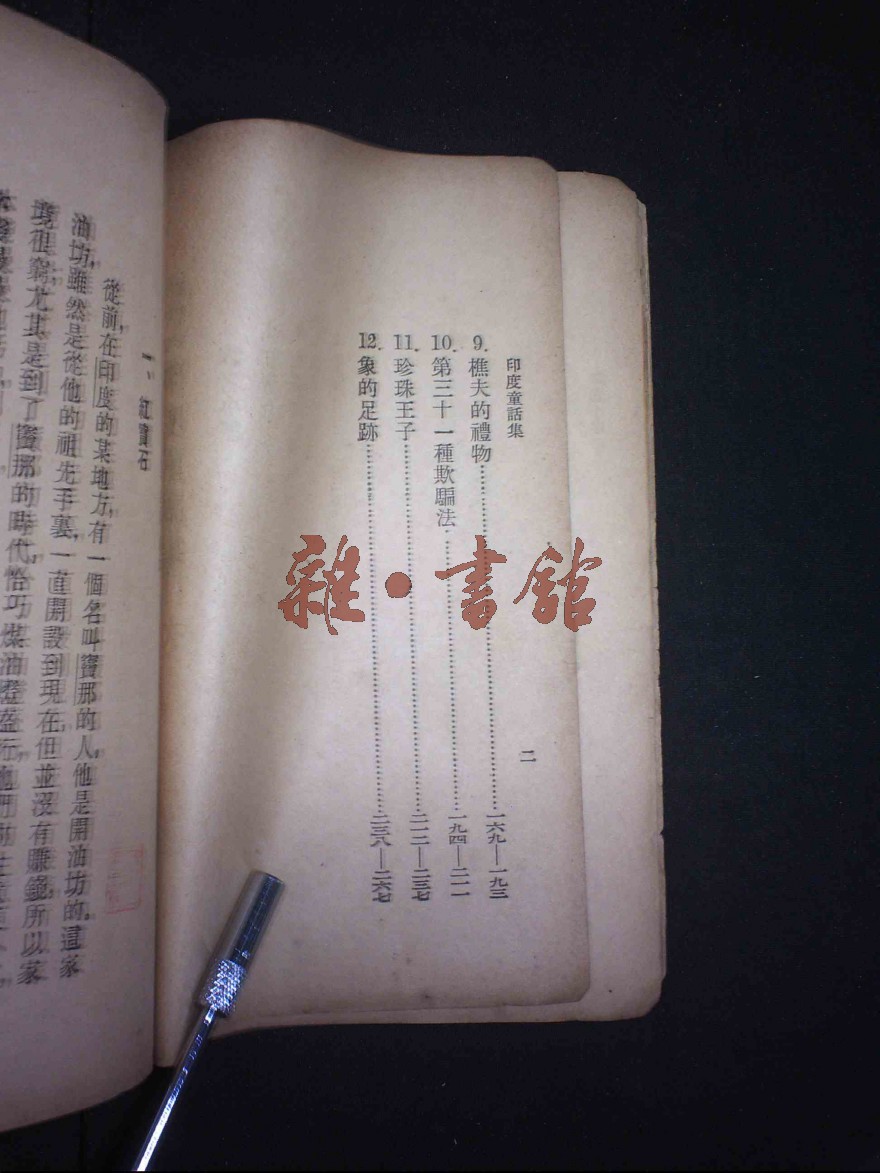 印度童話集
二
9. 樵夫的禮物……一六九—一九三
10. 第三十一種欺騙法……一九四—二一一
11. 珍珠王子……二一二—二三七
12. 象的足跡……二三八—二六七
雜·書館
一、紅寶石
從前，在印度的某地方，有一個名叫寶那的人，他是開油坊的。這家
油坊，雖然是從他的祖先手裏，一直開設到現在，但並沒有賺錢，所以家
境很窮，尤其是到了寶那的時代，恰巧煤油燈盛行，